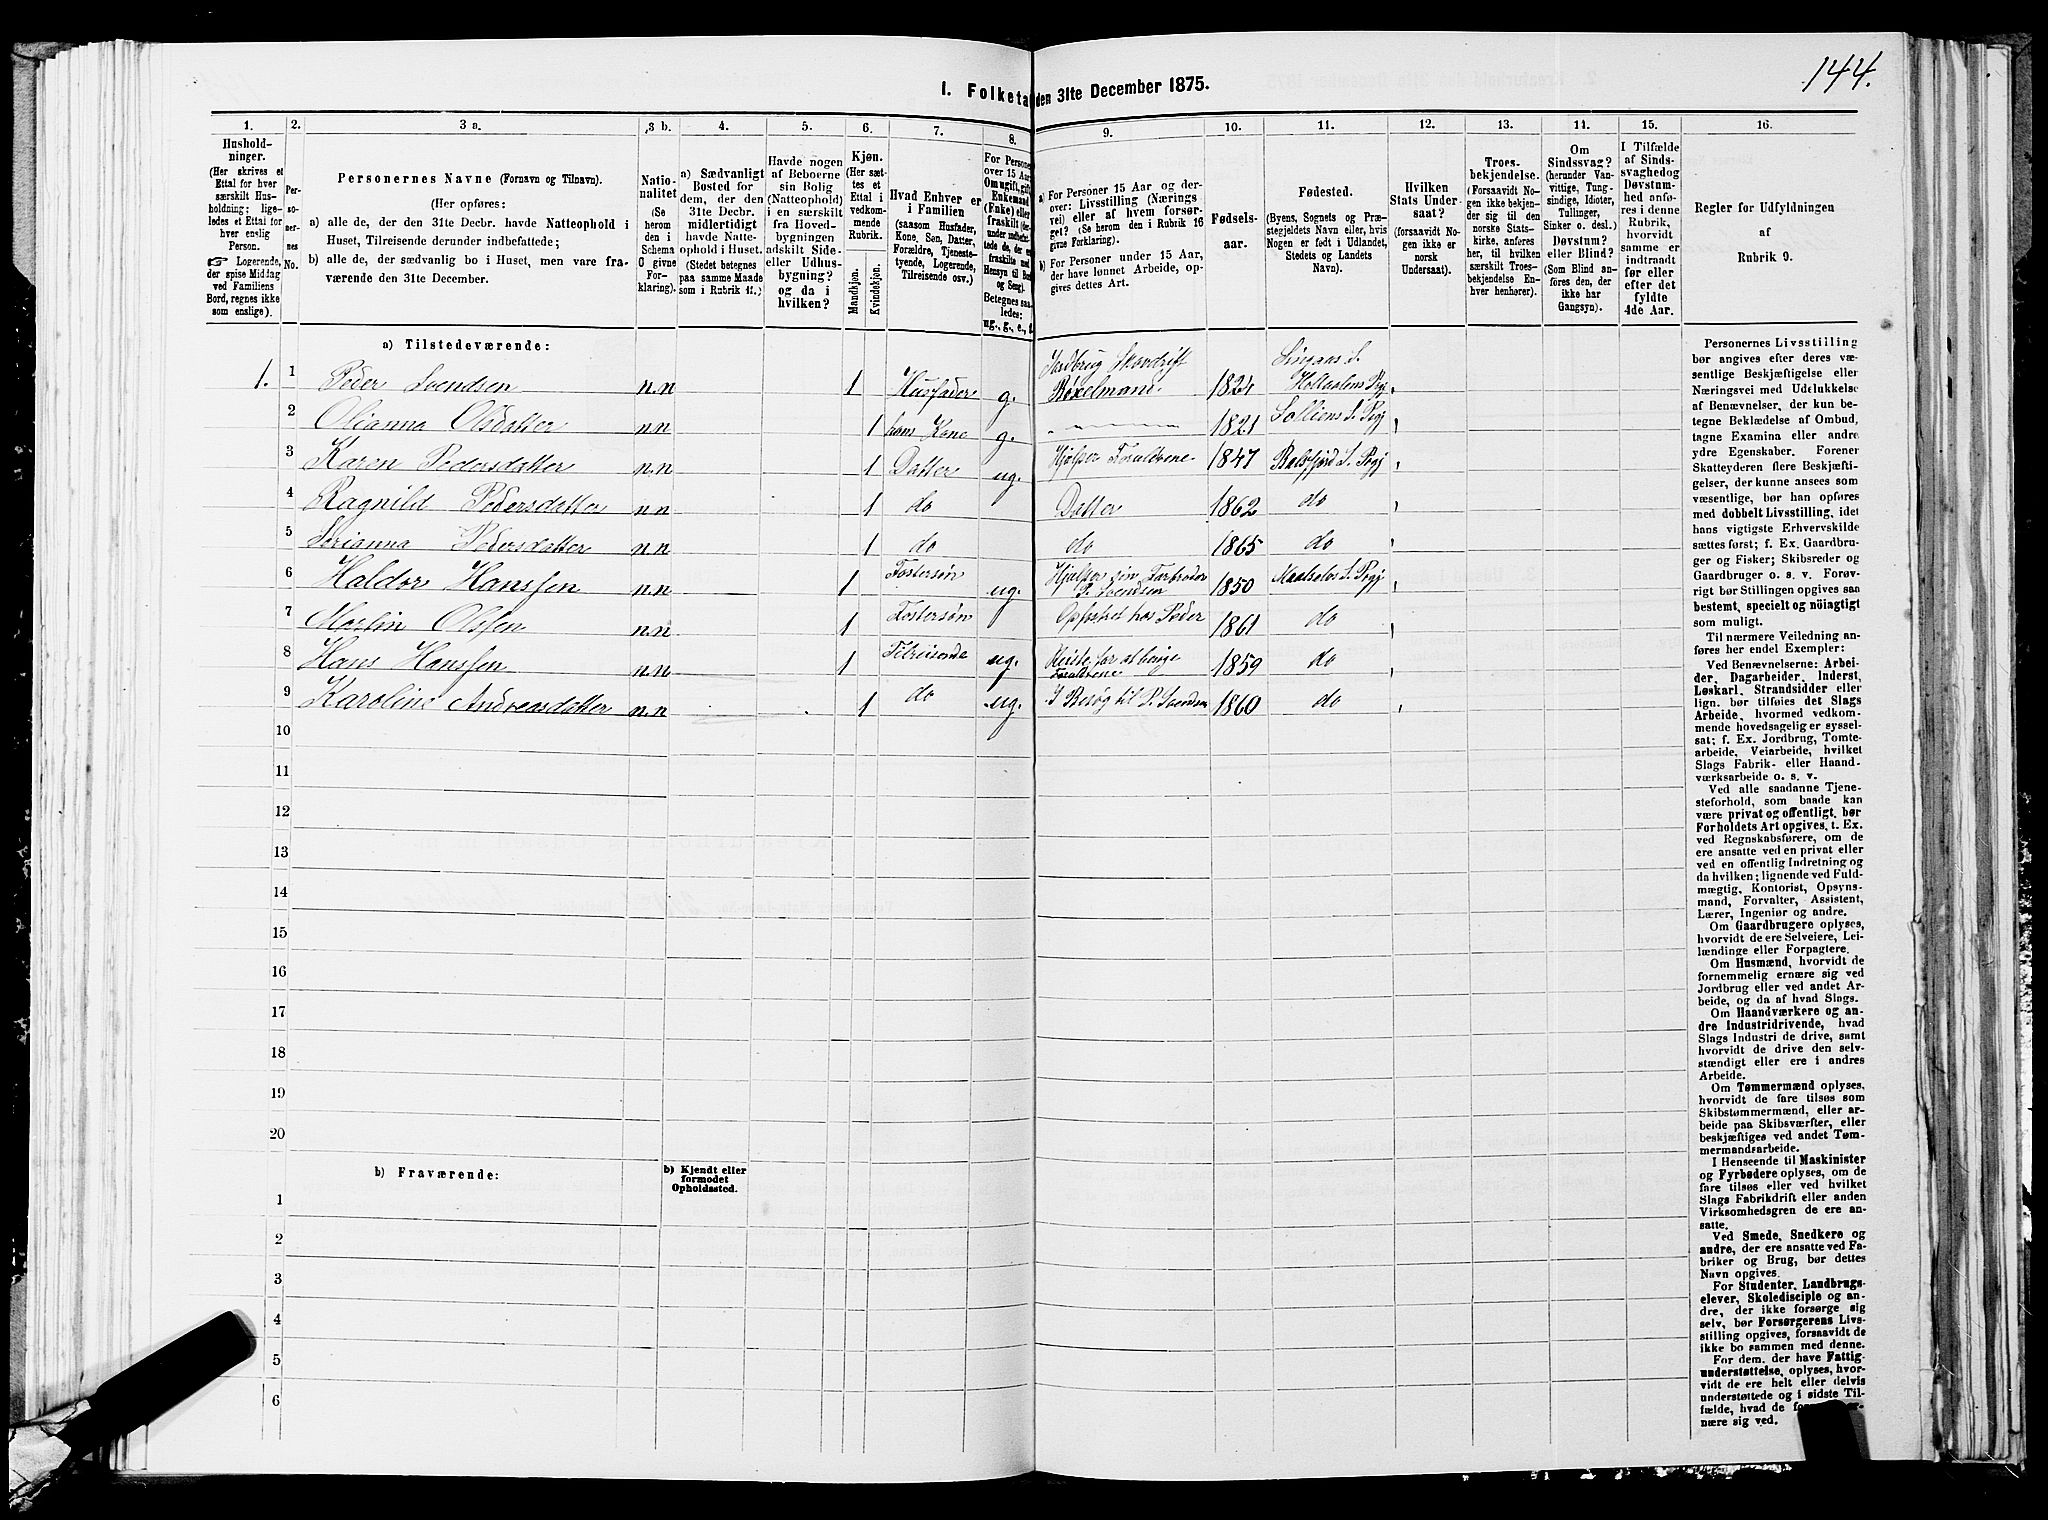 144.
1. Folketæ den 31te December 1875.
1. 2. 3 a. 3 b. 4. 5. 6. 7. 8. 9. 10. 11. 12. 13. 14. 15. 16.
Hushold-
ninger.
(Her skrives et
Ettal for hver
særskilt Hus-
holdning; lige-
ledes et Ettal for
hver enslig
Person.
☞ Logerende,
der spise Middag
ved Familiens
Bord, regnes ikke
som enslige).
Per-
so-
ner-
nes
No.
Personernes Navne (Fornavn og Tilnavn).
(Her opføres:
a) alle de, der den 31te Decbr. havde Natteophold i
Huset, Tilreisende derunder indbefattede;
b) alle de, der sædvanlig bo i Huset, men vare fra-
værende den 31te December.
Natio-
nalitet
(Se
herom
den i
Schema
O givne
For-
klaring).
a) Sædvanligt
Bosted for
dem, der den
31te Decbr.
midlertidigt
havde Natte-
ophold i Huset.
(Stedet betegnes
paa samme Maade
som i Rubrik 11.)
Havde nogen
af Beboerne
sin Bolig
(Natteophold)
i en særskilt
fra Hoved-
bygningen
adskilt Side-
eller Udhus-
bygning?
og da i
hvilken?
Kjøn.
(Her sæt-
tes et
Ettal i
vedkom-
mende
Rubrik.
Mandkjøn.
Kvindekjøn.
Hvad Enhver er
i Familien
(saasom Husfader,
Kone, Søn, Datter,
Forældre, Tjeneste-
tyende, Logerende,
Tilreisende osv.)
For Personer
over 15 Aar
Om ugift, gift,
Enkemand
(Enke) eller
fraskilt
Betegnes saa-
ledes:
ug., g., e., f.
a) For Personer 15 Aar og der-
over: Livsstilling (Nærings
vei) eller af hvem forsør-
get? (Se herom den i Rubrik 16
givne Forklaring).
b) For Personer under 15 Aar,
der have lønnet Arbeide, op-
gives dettes Art.
Fødsels-
aar.
Fødested.
(Byens, Sognets og Præ-
stegjeldets Navn eller, hvis
Nogen er født i Udlandet,
Stedets og Landets
Navn).
Hvilken
Stats Under-
saat?
(forsaavidt No-
gen ikke er
norsk
Undersaat).
Troes-
bekjendelse.
(Forsaavidt No-
gen ikke bekjen-
der sig til den
norske Stats-
kirke, anføres
her, til hvilken
særskilt Troes-
bekjendelse En-
hver henhører).
Om
Sindssvag?
(herunder Van-
vittige, Tung-
sindige, Idioter,
Tullinger,
Sinker o. desl.)
Døvstum?
eller Blind?
(Som Blind an-
føres den, der
ikke har
Gangsyn).
I Tilfælde
af Sinds-
svaghed og
Døvstum-
hed anfø-
res i denne
Rubrik,
hvorvidt
samme er
indtraadt
før eller
efter det
fyldte
4de Aar.
Regler for Udfyldningen
af
Rubrik 9.
a) Tilstedeværende:
1. 1 Peder Svendsen n.n 1 Husfader g. Jordbrug Skovdrift 1824
2 Olianna Olsdatter n.n 1 hans Kone g. 1821 Solliens S. Pgj
3 Karen Pedersdatter n.n 1 Datter ug. Hjelper Forældrene 1847 Balsfjord S. Pgj
4 Ragnild Pedersdatter n.n 1 do Datter 1862 do
5 Serianna Pedersdatter n.n 1 do do 1865 do
6 Haldor Hanssen n.n 1 Fostersøn ug. Hjælper sin Farbroder P. Svendsen 1850 Maalselvs S. Pgj
7 Martin Olssen n.n 1 Fostersøn Opfostret hos Peder 1861 do
8 Hans Hanssen n.n 1 Tilreisende ug. Reiste for at besøge Forældrene 1859 do
9 Karoline Andreasdatter n.n 1 do ug. I Besøg til P. Svendsen 1860 do
10
11
12
13
14
15
16
17
18
19
20
b) Fraværende:
b) Kjendt eller
formodet
Opholdssted.
1
2
3
4
5
6
Personernes Livsstilling
bør angives efter deres væ-
sentlige Beskjæftigelse eller
Næringsvei med Udelukkelse
af Benævnelser, der kun be-
tegne Beklædelse af Ombud,
tagne Examina eller andre
ydre Egenskaber. Forener
Skatteyderen flere Beskjæfti-
gelser, der kunne ansees som
væsentlige, bør han opføres
med dobbelt Livsstilling, idet
hans vigtigste Erhvervskilde
sættes først; f. Ex. Gaardbru-
ger og Fisker; Skibsreder og
Gaardbruger o. s. v. Forøv-
rigt bør Stillingen opgives saa
bestemt, specielt og nöiagtigt
som muligt.
Til nærmere Veiledning an-
føres her endel Exempler:
Ved Benævnelserne: Arbei-
der, Dagarbeider, Inderst,
Løskarl, Strandsidder eller
lign. bør tilføies det Slags
Arbeide, hvormed vedkom-
mende hovedsagelig er syssel-
sat; f. Ex. Jordbrug, Tomte-
arbeide, Veiarbeide, hvilket
Slags Fabrik- eller Haand-
værksarbeide o. s. v.
Ved alle saadanne Tjene-
steforhold, som baade kan
være privat og offentligt, bør
Forholdets Art opgives, t. Ex.
ved Regnskabsførere, om de
ere ansatte ved en privat eller
ved en offentlig Indretning og
da hvilken; lignende ved Fuld-
mægtig, Kontorist, Opsyns-
mand, Forvalter, Assistent,
Lærer, Ingeniør og andre.
Om Gaardbrugere oplyses,
hvorvidt de ere Selveiere, Lei-
lændinge eller Forpagtere.
Om Husmænd, hvorvidt de
fornemmelig ernære sig ved
Jordbrug eller ved andet Ar-
beide, og da af hvad Slags.
Om Haandværkere og an-
dre Industridrivende, hvad
Slags Industri de drive, samt
hvorvidt de drive den selv-
stændigt eller ere i andres
Arbeide.
Om Tømmermænd oplyses,
hvorvidt de fare tilsøs som
Skibstømmermænd, eller ar-
beide paa Skibsværfter, eller
beskjæftiges ved andet Tøm-
mermandsarbeide.
I Henseende til Maskinister
og Fyrbødere oplyses, om de
fare tilsøs eller ved hvilket
Slags Fabrikdrift eller anden
Virksomhedsgren de ere an-
satte.
Ved Smede, Snedkere og
andre, der ere ansatte ved Fa-
briker og Brug, bør dettes
Navn opgives.
For Studenter, Landbrugs-
elever, Skoledisciple og an-
dre, der ikke forsørge sig
selv, bør Forsørgerens Livs-
stilling opgives, forsaavidt de
ikke bo sammen med denne.
For dem, der have Fattig-
understøttelse, oplyses, hvor-
vidt de ere helt eller delvis
understøttede og i sidste Til-
fælde, hvad de
nære sig ved.